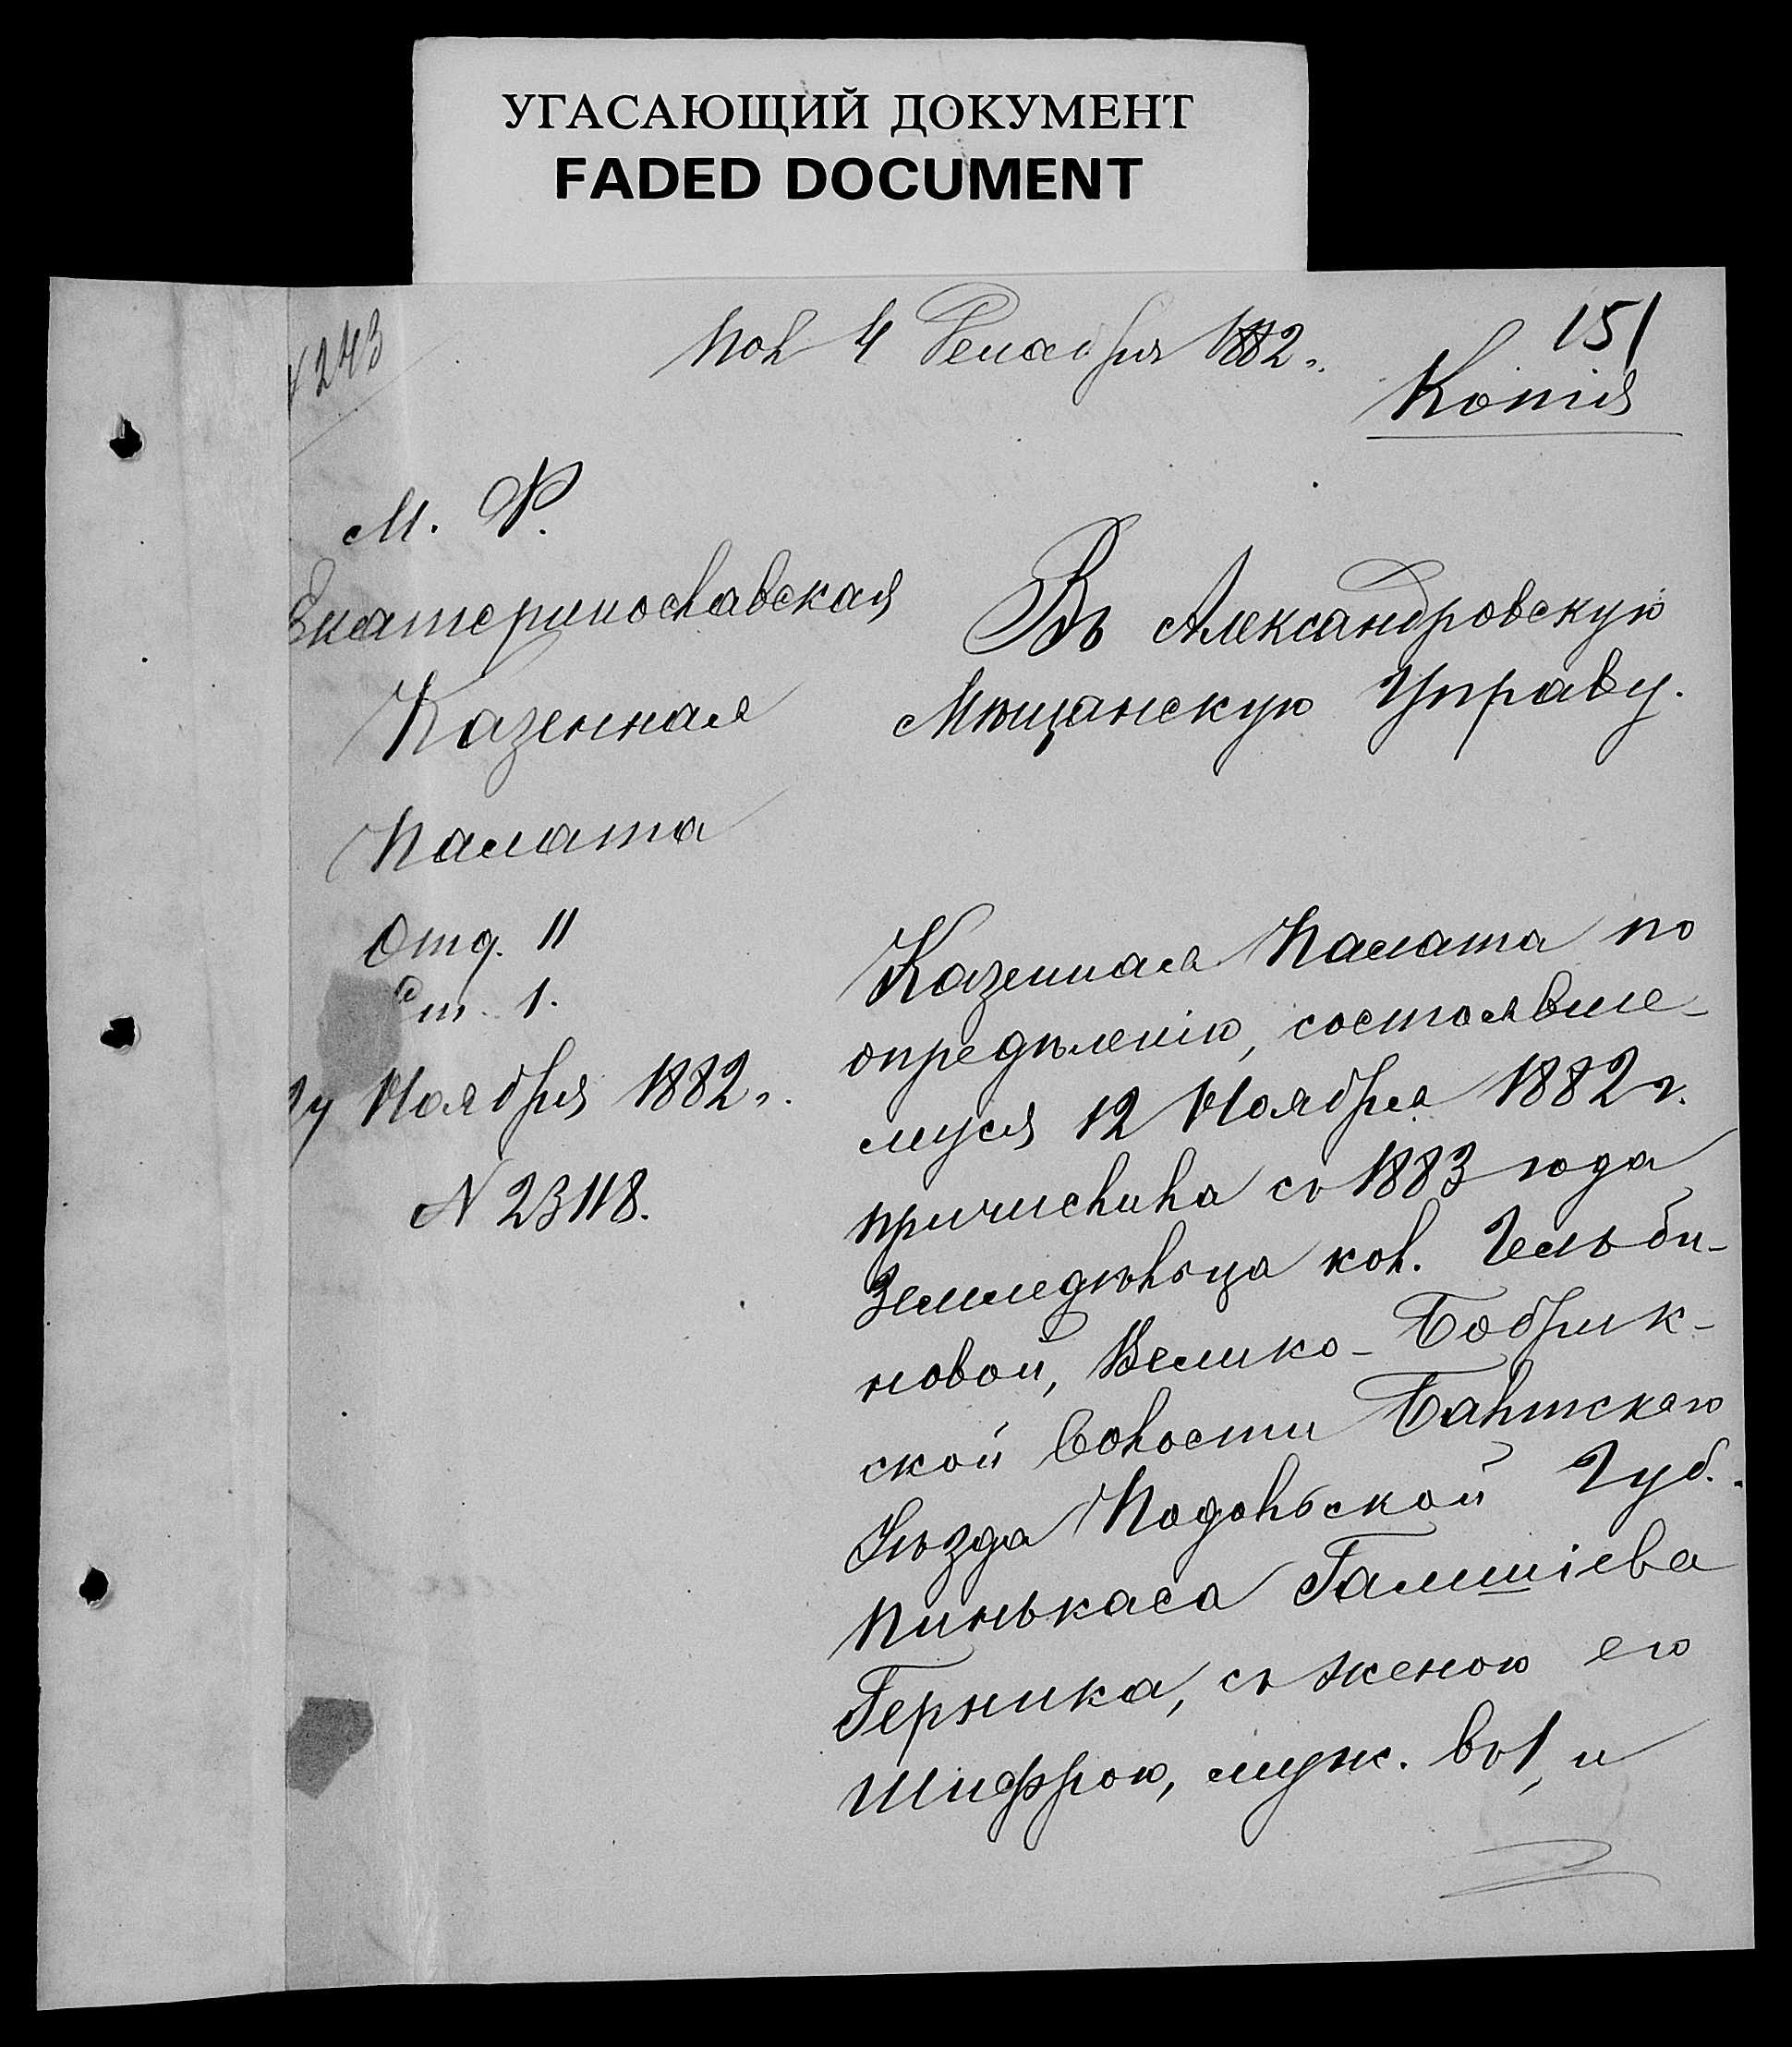 УГАСАЮЩИЙ ДОКУМЕНТ
FADED DOCUMENT
243
Пол 4 Декабря 1882 г.
151
Копія
М. Ф.
Екатеринославская
Казенная
Палата
Отд. II
Ст. 1.
Ноября 1882 г.
N 23118.
Въ Александровскую
Мѣщанскую Управу.
Казенная Палата по
опредѣленію, состоявше-
муся 12 Ноября 1882 г.
причислила съ 1883 года
Земледѣльца кол. Гельби-
новой, Велико-Бобрик-
ской Волости Балтскаго
Уѣзда Подольской Губ.
Пинькаса Гамшіева
Герника, съ женою его
Шифрою, муж. въ 1, и